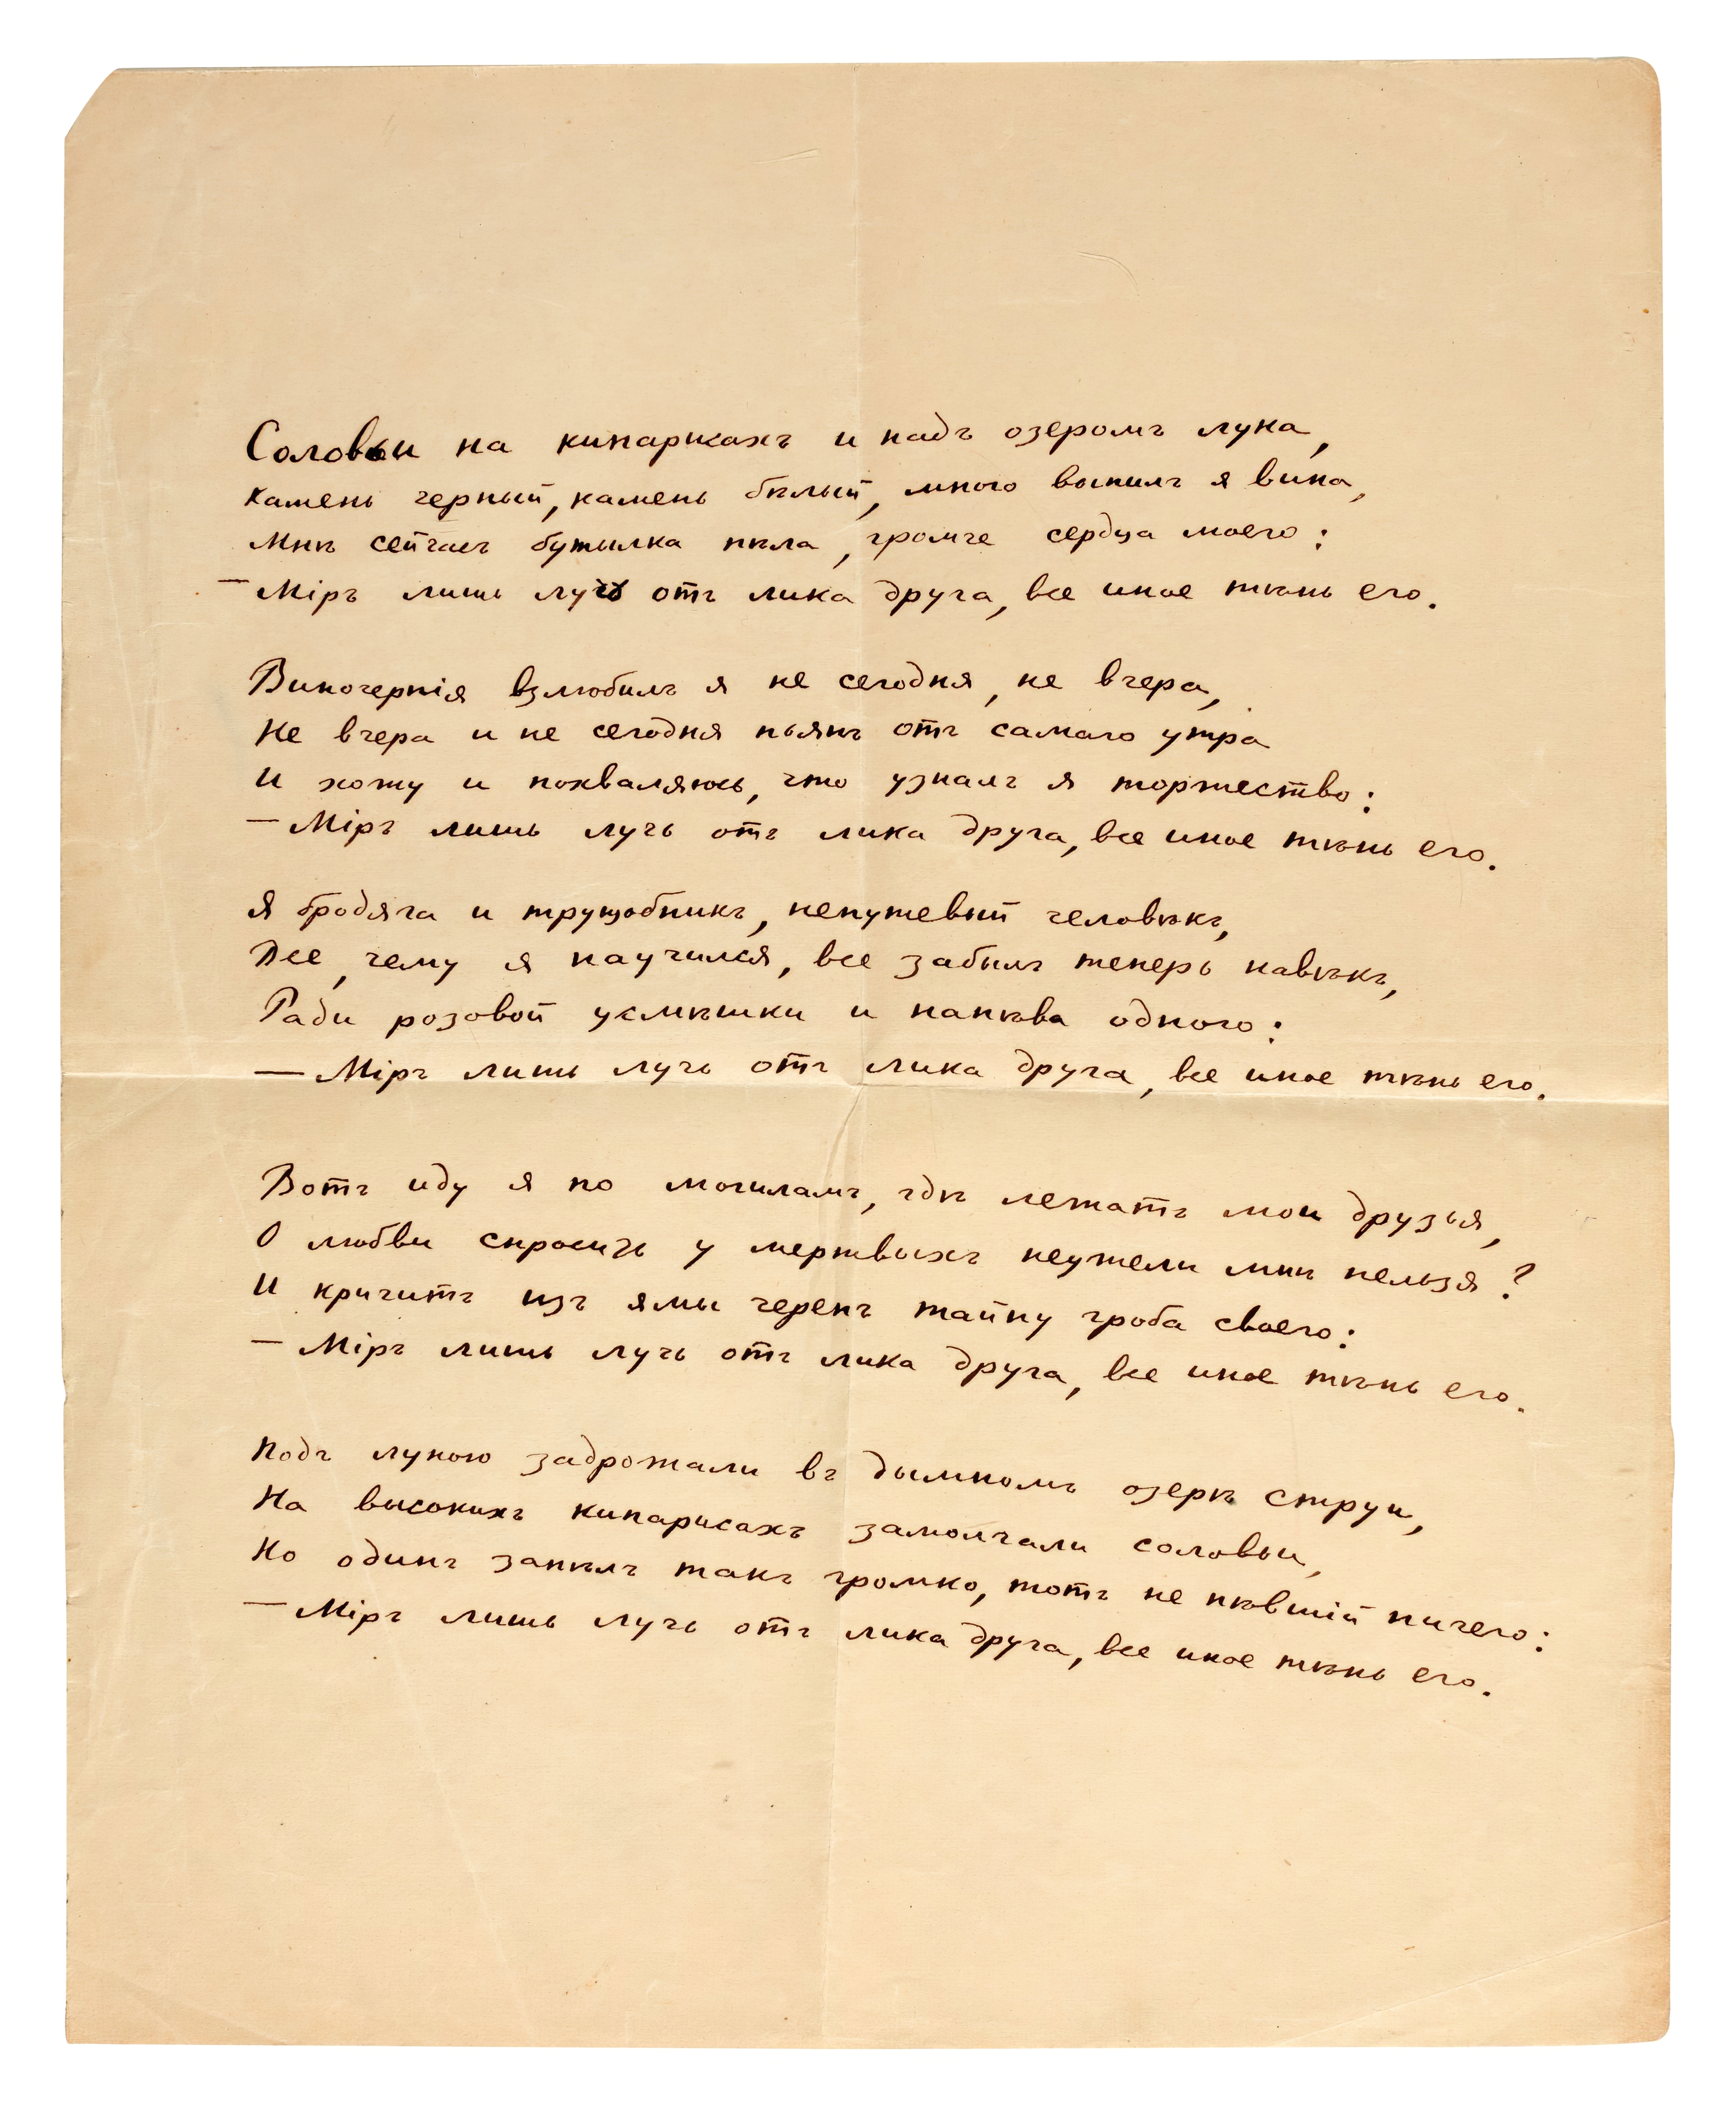 Соловьи на кипарисахъ и надъ озеромъ луна,
Камень черный, камень бѣлый, много выпилъ я вина,
Мнѣ сейчасъ бутылка пѣла, громче сердца моего:
— Міръ лишь лучъ отъ лика друга, все иное тѣнь его.
Виночерпія взлюбилъ я не сегодня, не вчера,
Не вчера и не сегодня пьянъ отъ самаго утра
И хожу и похваляюсь, что узналъ я торжество:
— Міръ лишь лучь отъ лика друга, все иное тѣнь его.
Я бродяга и трущобникъ, непутевый человѣкъ,
Все, чему я научился, все забылъ теперь навѣкъ,
Ради розовой усмѣшки и напѣва одного:
— Міръ лишь лучь отъ лика друга, все иное тѣнь его.
Вотъ иду я по могиламъ, гдѣ лежатъ мои друзья,
О любви спросить у мертвыхъ неужели мнѣ нельзя?
И кричитъ изъ ямы черепъ тайну гроба своего:
— Міръ лишь лучь отъ лика друга, все иное тѣнь его.
Подъ луною задрожали въ дымномъ озерѣ струи,
На высокихъ кипарисахъ замолчали соловьи,
Но одинъ запѣлъ такъ громко, тотъ не пѣвшій ничего:
— Міръ лишь лучь отъ лика друга, все иное тѣнь его.